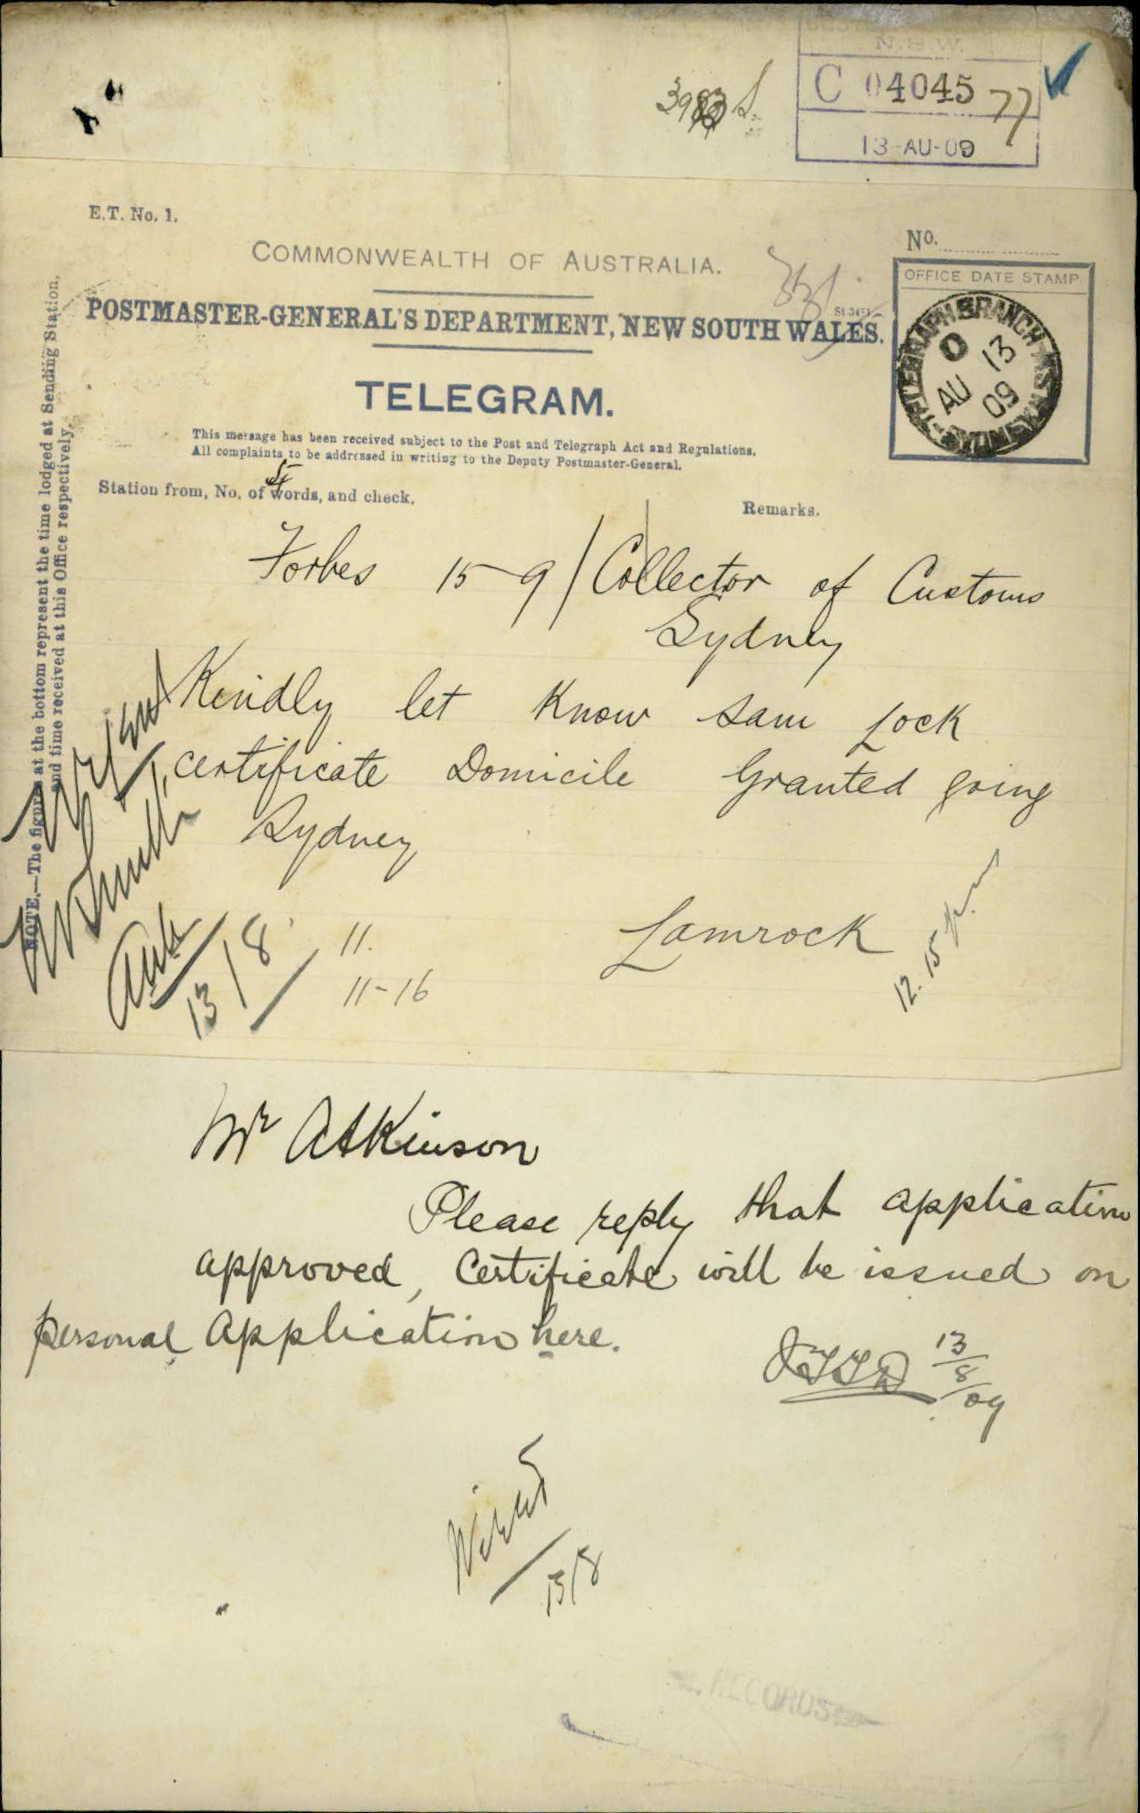 N.S.W.
C 04045 77
13-AU-09
E.T. No. 1.
COMMONWEALTH OF AUSTRALIA.
No.
POSTMASTER-GENERAL'S DEPARTMENT, NEW SOUTH WALES.
OFFICE DATE STAMP
TELEGRAPH BRANCH
AU 13
09
TELEGRAM.
This message has been received subject to the Post and Telegraph Act and Regulations.
All complaints to be addressed in writing to the Deputy Postmaster-General.
Station from, No. of words, and check.
Remarks.
NOTE.—The figures at the bottom represent the time lodged at Sending Station,
and time received at this Office respectively.
Forbes 15 9 / Collector of Customs
Sydney
Kindly let know Sam Lock
certificate Domicile Granted going
Sydney
Lamrock
12.15 pm
11.
11-16
13/8
Mr Atkinson
Please reply that application
approved, Certificate will be issued on
personal application here.
13/8/09
13/8
RECORDS